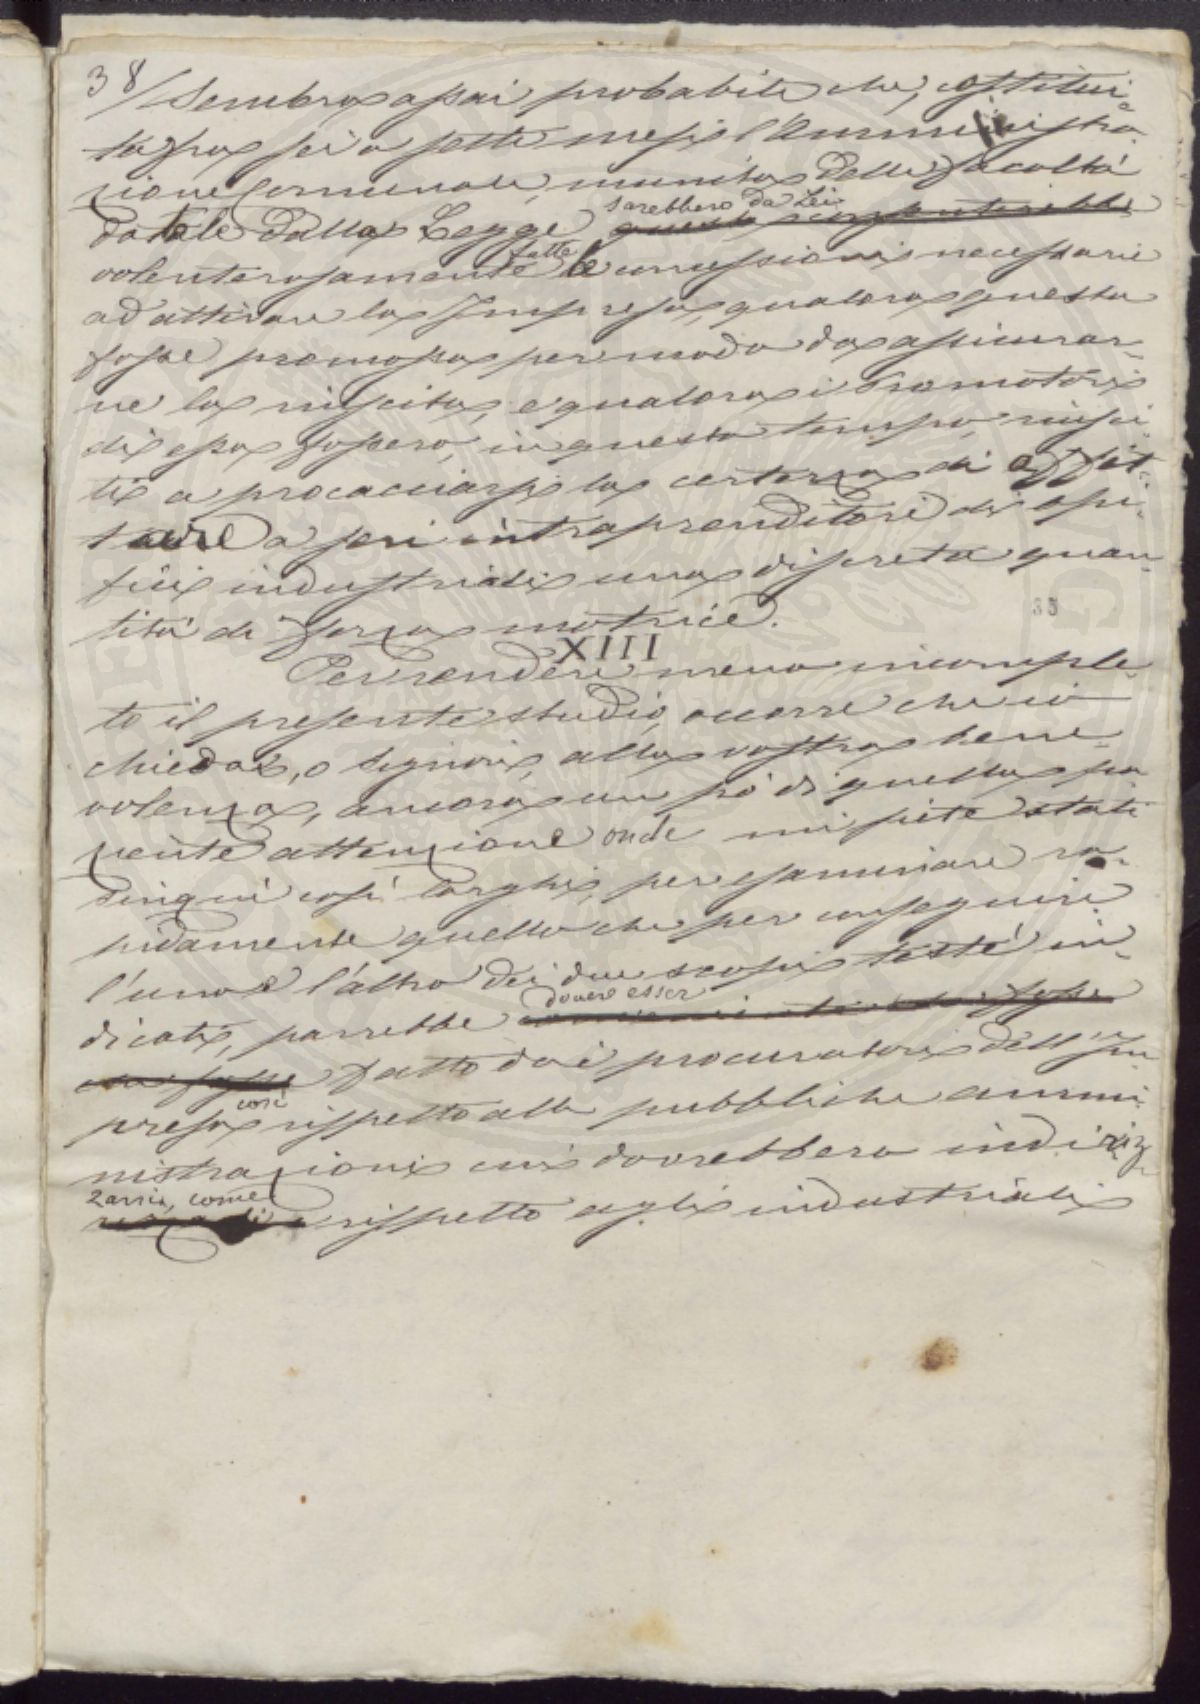 38/ Sembra assai probabile che, costitui-
ta fra sei o sette mesi l'Amministra-
zione Comunale, munita delle facoltà
datele dalla Legge sarebbero da Lei
volenterosamente fatte le concessioni necessarie
ad attivare la Impresa, qualora questa
fosse promossa per modo da assicurar-
ne la riuscita, e qualora i Promotori
di essa fossero, in questo tempo, riusci-
ti a procacciarsi la certezza di affit-
tare a seri intraprenditori di opi-
fici industriali una discreta quan-
tità di forza motrice.
35
XIII
Per rendere meno incomple-
to il presente studio, occorre che io
chieda, o Signori, alla vostra bene-
volenza, ancora un pò di quella pa
ziente attenzione onde mi siete stati
sinquì così larghi, per esaminare ra-
pidamente quello che per conseguire
l'uno e l'altro dei due scopi testè in-
dicati, parrebbe dovere esser
fatto dai procuratori dell'Im-
presa così rispetto alle pubbliche ammi-
nistrazioni cui dovrebbero indiriz-
zarsi, come rispetto agli industriali